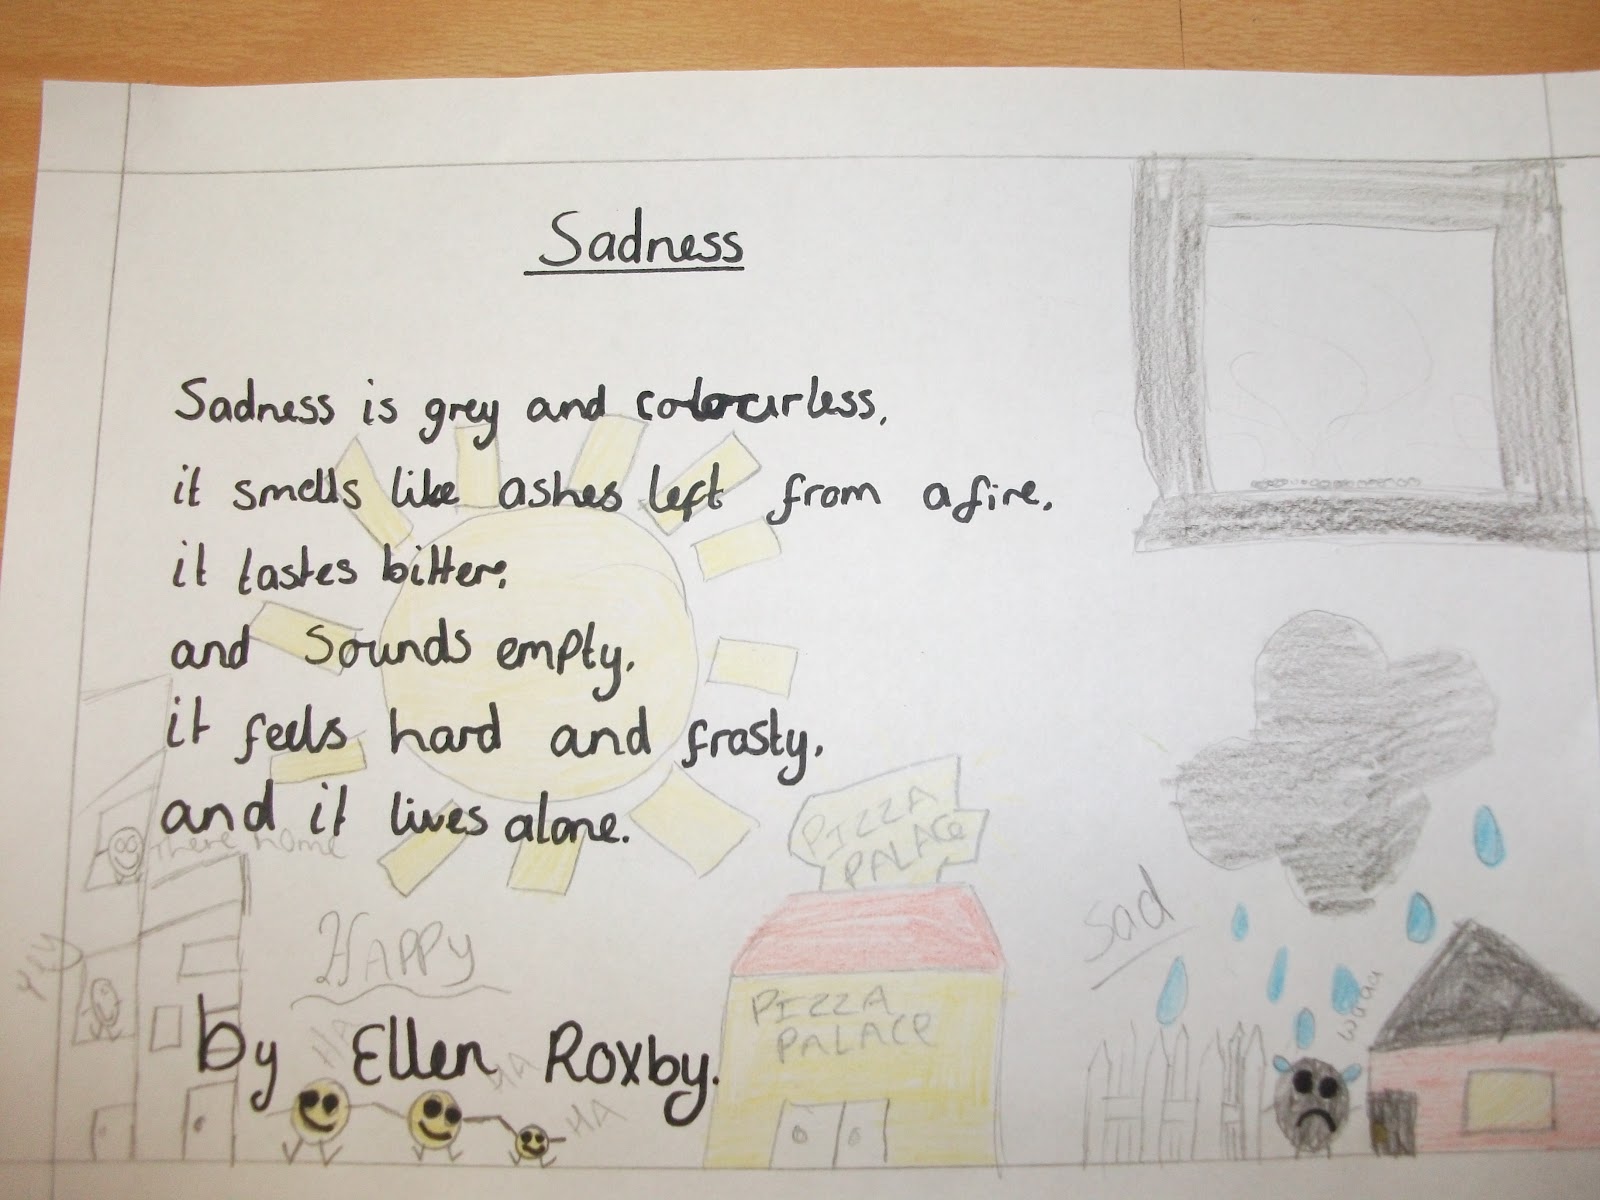 Sadness
Sadness is grey and colourless,
it smells like ashes left from a fire.
it tastes bitter,
and sounds empty.
it feels hard and frosty.
and it lives alone.
by Ellen Roxby.
There home
yay
HAPPY
HA
HA
HA
PIZZA
PALACE
PIZZA
PALACE
Sad
waaa